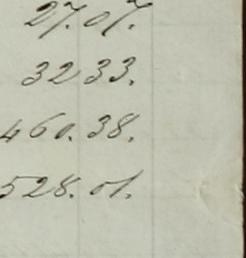 27.07.
3233.
460.38.
528.01.